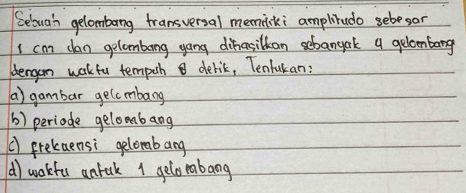 Sebuah gelombang transversal memiliki amplitudo sebesar
1 cm dan gelombang yang dihasilkan sebanyak 4 gelombang
dengan waktu tempuh 8 detik, Tentukan:
a) gambar gelombang
b) periode gelombang
c) frekuensi gelombang
d) waktu untuk 1 gelombang